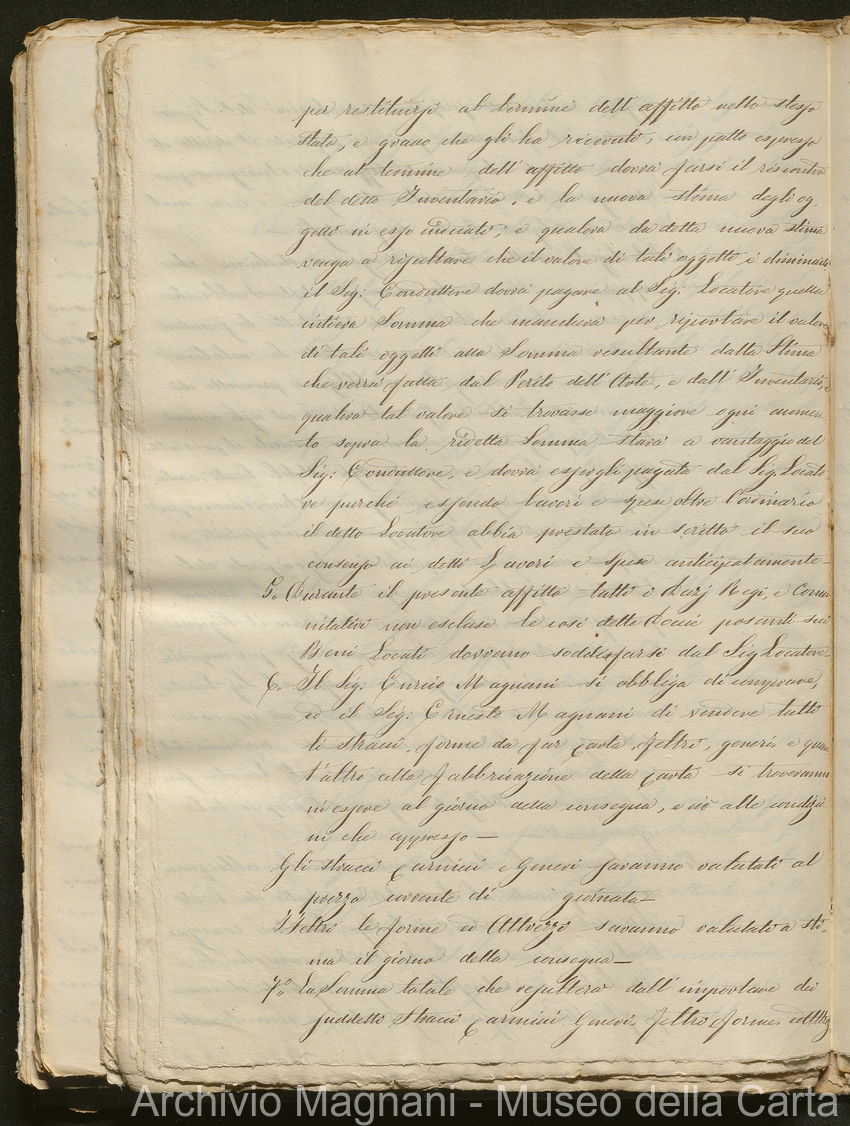 per restituirsi al termine dell'affitto nello stesso
stato, e grado che gli ha ricevuti, con patto espresso
che al termine dell'affitto dovrà farsi il riscontro
del detto Inventario, e la nuova stima degli og
getti in esso indicati; e qualora da detta nuova stima
venga a risultare che il valore di tali oggetti è diminuito
il Sig: Conduttore dovrà pagare al Sig: Locatore quella
intiera Somma che mancherà per riportare il valore
di tali oggetti alla Somma resultante dalla Stima
che verrà fatta dal Perito dell'Arte, e dall'Inventario, e
qualora tal valore si trovasse maggiore ogni aumen
to sopra la ridetta Somma starà a vantaggio del
Sig: Conduttore, e dovrà essergli pagato dal Sig. Locato
re purché essendo lavori e spese oltre l'ordinario
il detto Locatore abbia prestato in scritto il suo
consenso ai detti Lavori e Spese anticipatamente —
5. Durante il presente affitto tutti i Dazj Regi, e Comu
nitativi non escluse le così dette Docie posanti sui
Beni Locati dovranno soddisfarsi dal Sig Locatore
6. Il Sig: Enrico Magnani si obbliga di comprare,
ed il Sig: Ernesto Magnani di vendere tutti
li Stracci, forme da far Carta, Feltri, generi e quan
t'altro alla fabbricazione della Carta si troveranno
in essere al giorno della consegna, e ciò alle condizio
ni che appresso —
Gli stracci Carnicci e Generi saranno valutati al
prezzo corrente di giornata —
I Feltri le forme ed Attrezzi saranno valutati a sti-
ma il giorno della consegna —
7.° La Somma totale che resulterà dall'importare dei
suddetti Stracci Carnicci Generi, Feltri, forme, ed Attrez
Archivio Magnani - Museo della Carta